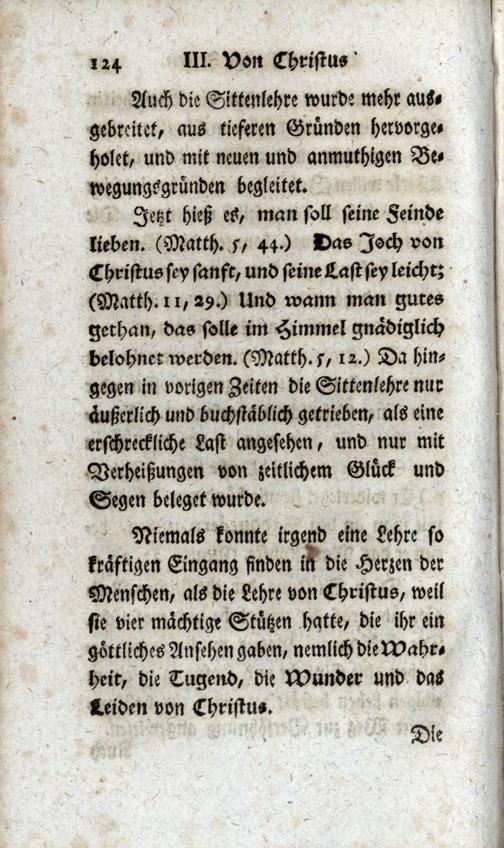 124 III. Von Christus
Auch die Sittenlehre wurde mehr aus-
gebreitet, aus tieferen Gründen hervorge-
holet, und mit neuen und anmuthigen Be-
wegungsgründen begleitet.
Jetzt hieß es, man soll seine Feinde
lieben. (Matth. 5, 44.) Das Joch von
Christus sey sanft, und seine Last sey leicht;
(Matth. 11, 29.) Und wann man gutes
gethan, das solle im Himmel gnädiglich
belohnet werden. (Matth. 5, 12.) Da hin-
gegen in vorigen Zeiten die Sittenlehre nur
äußerlich und buchstäblich getrieben, als eine
erschreckliche Last angesehen, und nur mit
Verheißungen von zeitlichem Glück und
Segen beleget wurde.
Niemals konnte irgend eine Lehre so
kräftigen Eingang finden in die Herzen der
Menschen, als die Lehre von Christus, weil
sie vier mächtige Stützen hatte, die ihr ein
göttliches Ansehen gaben, nemlich die Wahr-
heit, die Tugend, die Wunder und das
Leiden von Christus.
Die